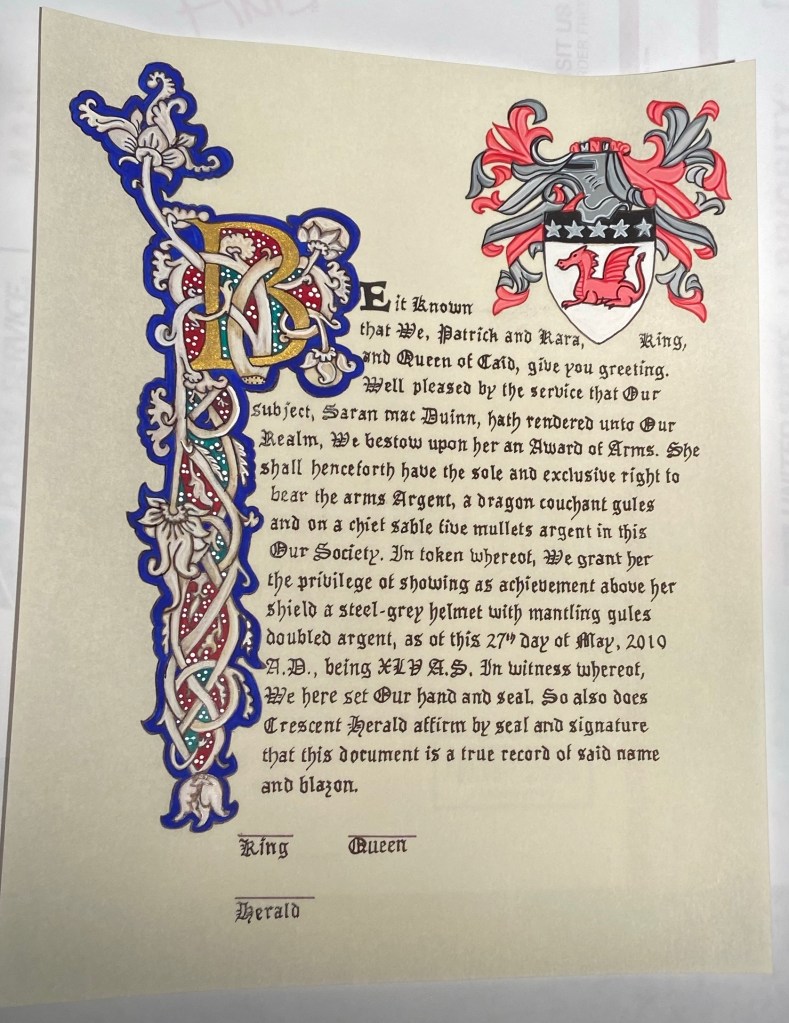 BE it Known
that We, Patrick and Kara, King,
and Queen of Caid, give you greeting.
Well pleased by the service that Our
subject, Saran mac Duinn, hath rendered unto Our
Realm, We bestow upon her an Award of Arms. She
shall henceforth have the sole and exclusive right to
bear the arms Argent, a dragon couchant gules
and on a chief sable five mullets argent in this
Our Society. In token whereof, We grant her
the privilege of showing as achievement above her
shield a steel-grey helmet with mantling gules
doubled argent, as of this 27th day of May, 2010
A.D., being XLV A.S. In witness whereof,
We here set Our hand and seal. So also does
Crescent Herald affirm by seal and signature
that this document is a true record of said name
and blazon.
King Queen
Herald